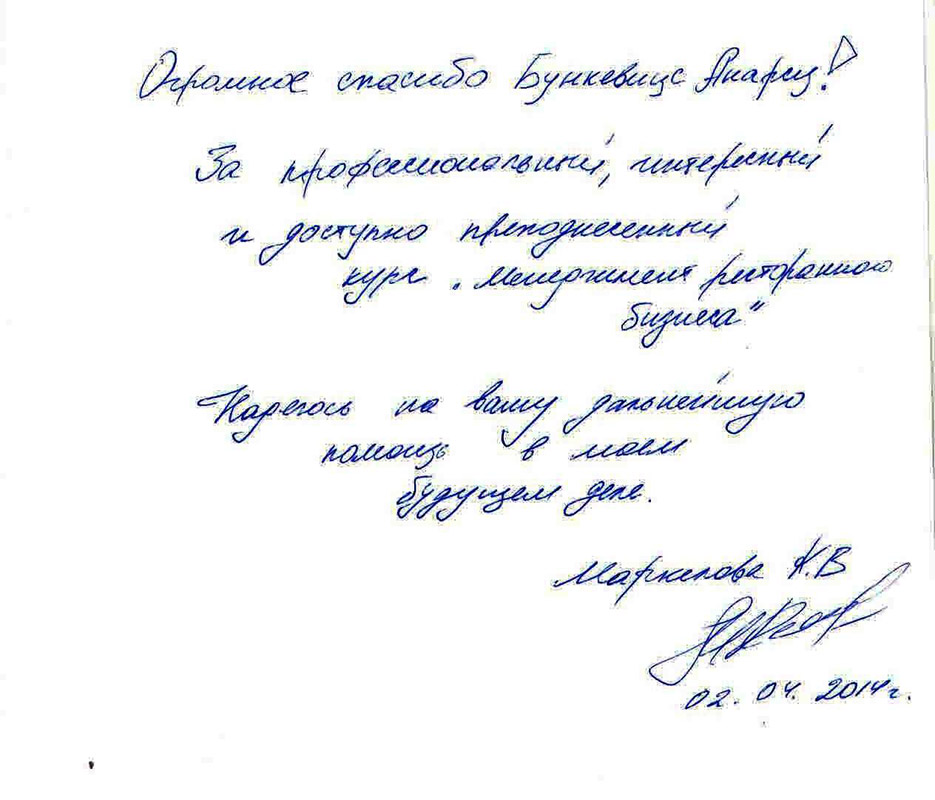 Огромное спасибо Бункевицс Анарсу!
За профессиональный, интересный
и доступно преподнесенный
курс „Менеджмент ресторанного
бизнеса"
Надеюсь на вашу дальнейшую
помощь в моем
будущем деле.
Маркелова К.В
02.04.2014г.